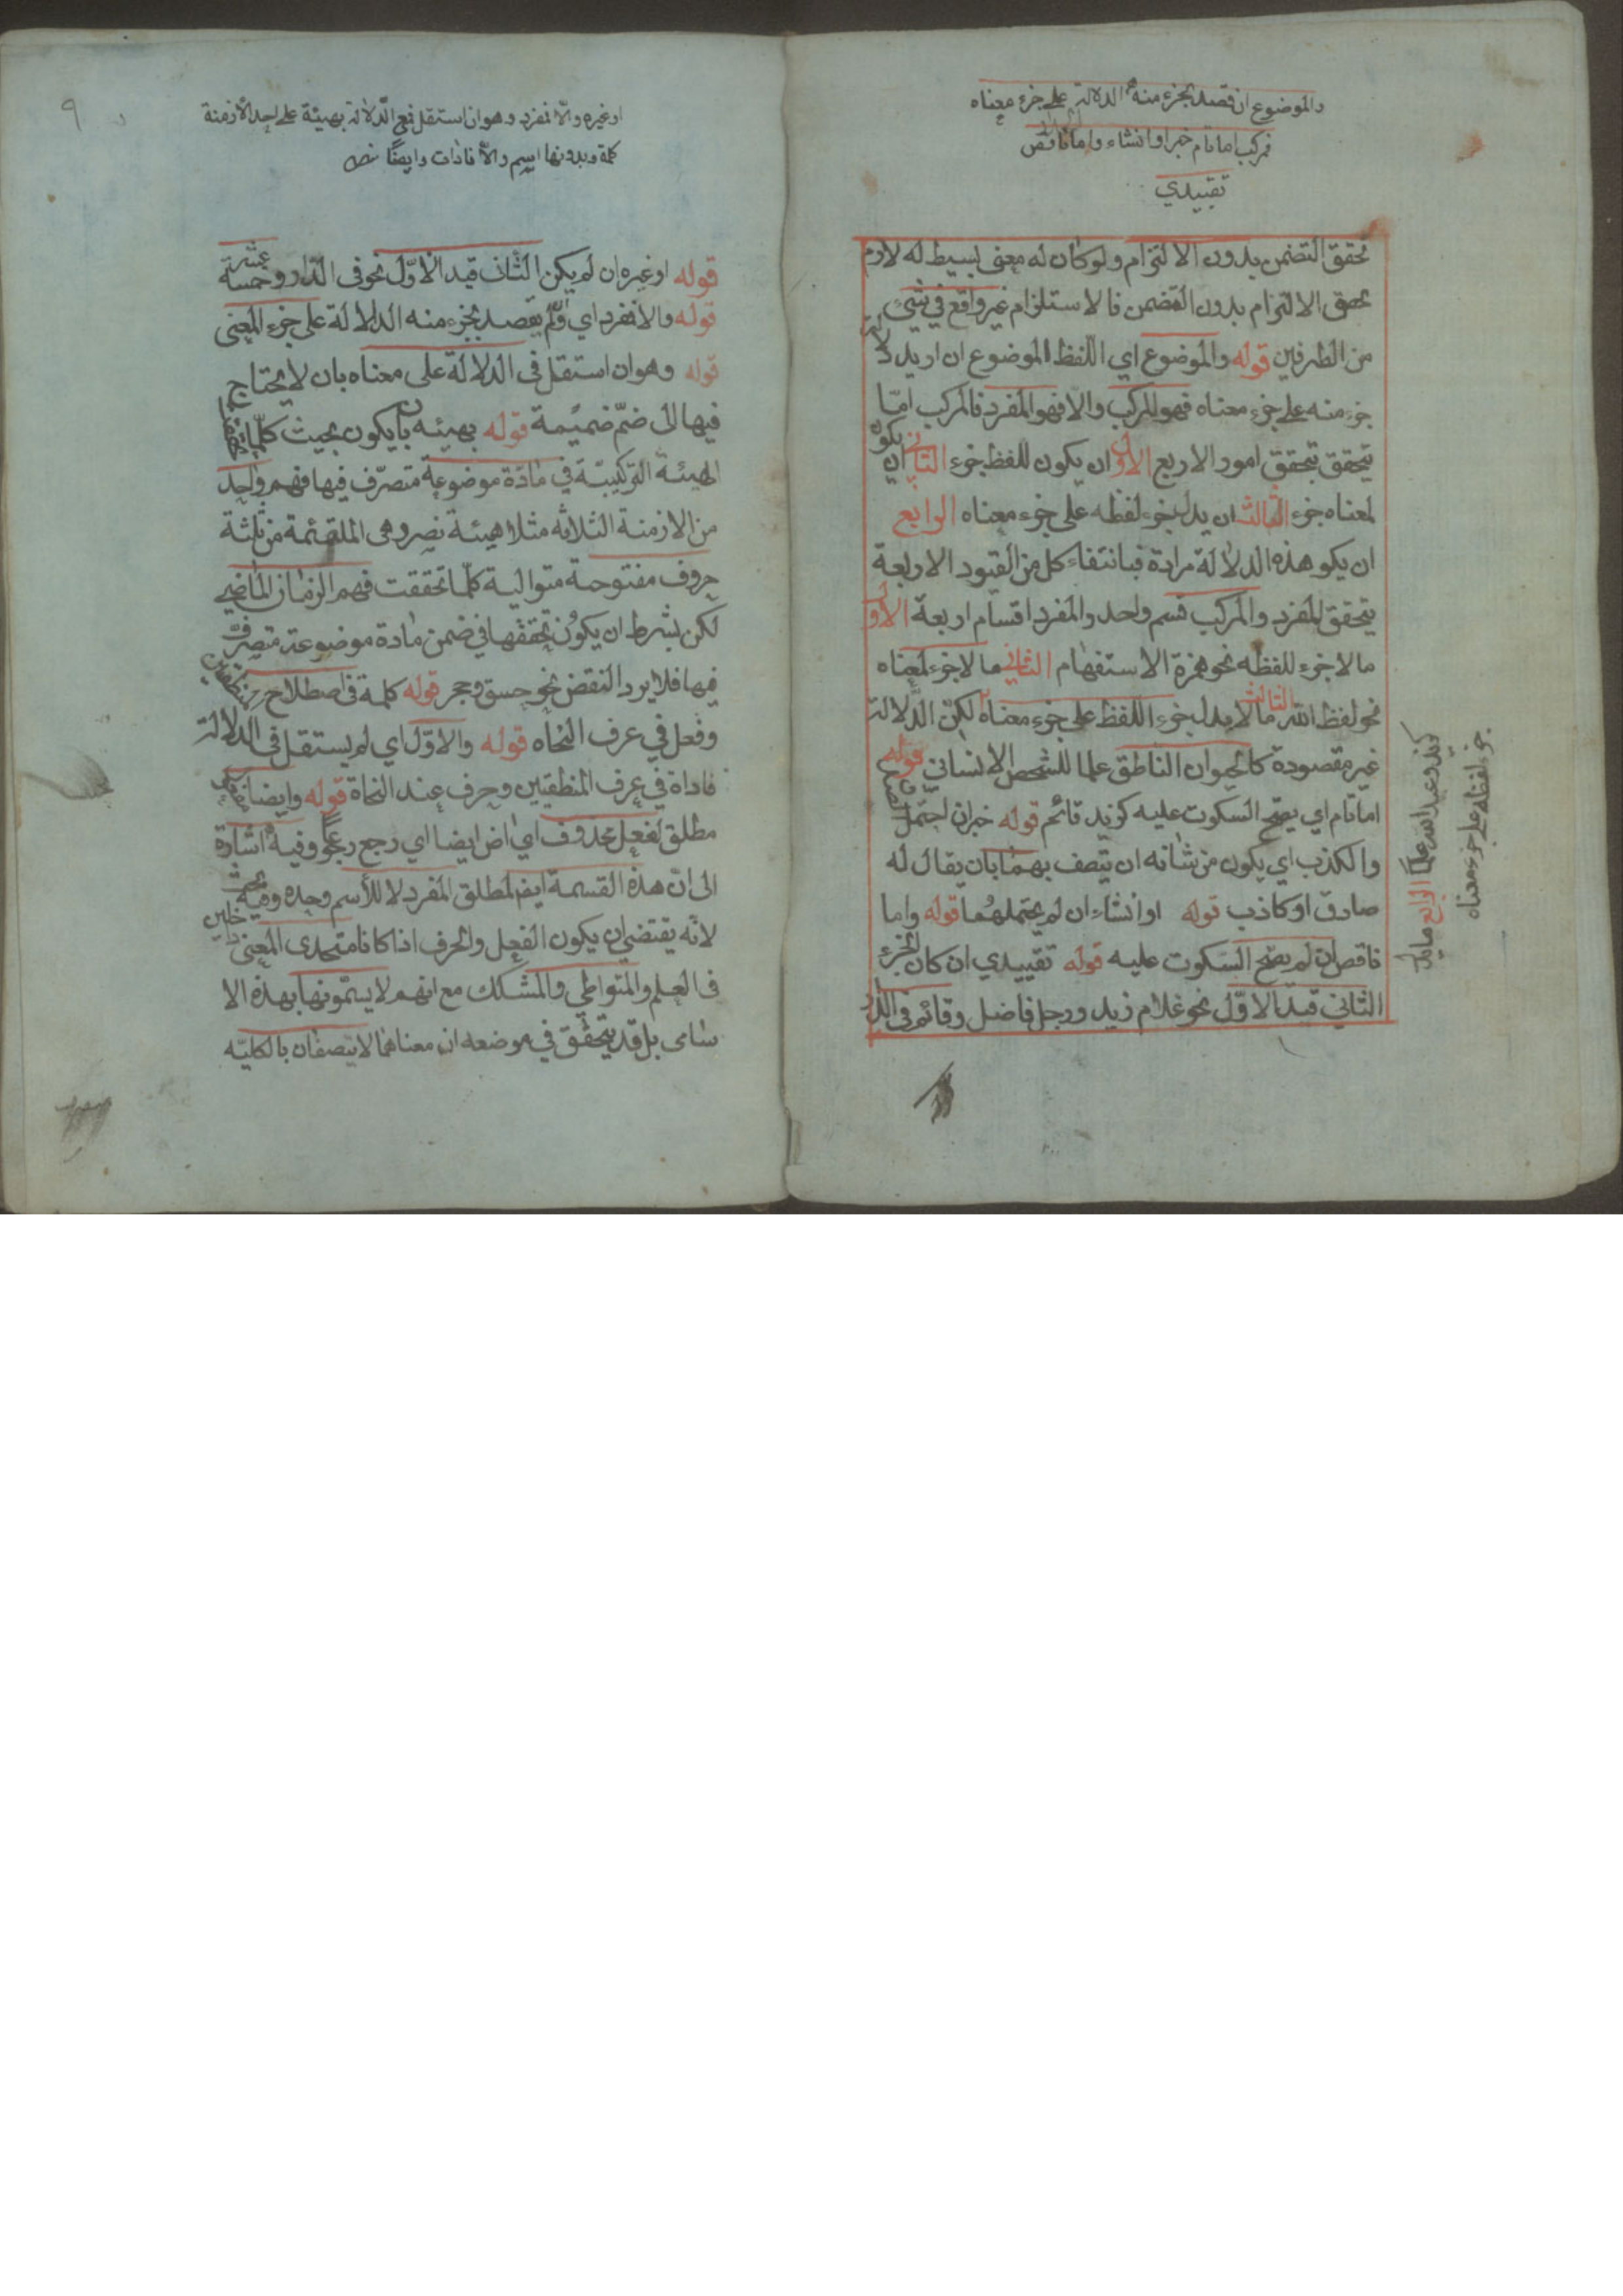 والموضوع ان قصد بجزء منه الدلالة على جزء معناه
فمركب اما تام خبر او انشاء واما ناقص
تقييدي
تحقق التضمن بدون الالتزام ولو كان له معنى بسيط له لازم
تحقق الالتزام بدون التضمن فالاستلزام غير واقع في شيء
من الطرفين قوله والموضوع اي اللفظ الموضوع ان اريد دلالة
جزء منه على جزء معناه فهو المركب والا فهو المفرد فالمركب امّا
يتحقق بتحقق امور الاربع الاول ان يكون للفظ جزء الثاني ان يكون
لمعناه جزء الثالث ان يدل جزء لفظه على جزء معناه الرابع
ان يكو هذه الدلالة مرادة فبانتفاء كل من القيود الاربعة
يتحقق المفرد والمركب قسم واحد والمفرد اقسام اربعة الاول
ما لا جزء للفظه نحو همزة الاستفهام الثاني ما لا جزء لمعناه
نحو لفظ الله الثالث ما لا يدل جزء اللفظ على جزء معناه لكنّ الدّلالة
غير مقصودة كالحيوان الناطق علما للشخص الانساني قوله
اما تام اي يصح السكوت عليه كزيد قائم قوله خبر ان احتمل الصدق
والكذب اي يكون من شانه ان يتصف بهما بان يقال له
صادق او كاذب قوله او انشاء ان لم يحتملهما قوله واما
ناقص ان لم يصح السكوت عليه قوله تقييدي ان كان الجزء
الثاني قيد الاوّل نحو غلام زيد ورجل فاضل وقائم في الدار
كزيد وعبد الله علما الرابع ما يدل
جزء لفظه على جزء معناه
٩
او غيره والّا فمفرد وهو ان استقل فمع الدّلالة بهيئة على احد الازمنة
كلمة وبدونها اسم والّا فادات وايضًا نص
قوله او غيره ان لم يكن الثّاني قيد الاوّل نحو في الدّار وخمسة عشر
قوله والا فمفرد اي وان لم يقصد بجزء منه الدلالة على جزء المعنى
قوله وهو ان استقل في الدلالة على معناه بان لا يحتاج
فيها الى ضمّ ضميمة قوله بهيئه بان يكون بحيث كلّما تحققت
الهيئة التركيبيّة في مادّة موضوعة متصرّف فيها فهم واحد
من الازمنة الثلاثه مثلا هيئة نصر وهى الملتئمة من ثلثة
حروف مفتوحة متوالية كلّما تحققت فهم الزمان الماضي
لكن بشرط ان يكون تحققها في ضمن مادة موضوعة متصرفة
فيها فلا يرد النقض بنحو جسق وحجر قوله كلمة في اصطلاح المنطقيين
وفعل في عرف النحاه قوله والا اوّل اي لم يستقل في الدلالة
فاداة في عرف المنطقيين وحرف عند النحاة قوله وايضا مفعول
مطلق لفعل محذوف اي اض ايضا اي رجع رجوعًا وفيه اشارة
الى انّ هذه القسمة ايضا لمطلق المفرد لا للأسم وحده وفيه بحث
لانّه يقتضي ان يكون الفعل والحرف اذا كانا متحدى المعنى داخلين
فى العلم والمتواطي والمشكك مع انهم لا يسمّونها بهذه الا
سامى بل قد يتحقق في موضعه ان معناهما لا يتصفان بالكليّه